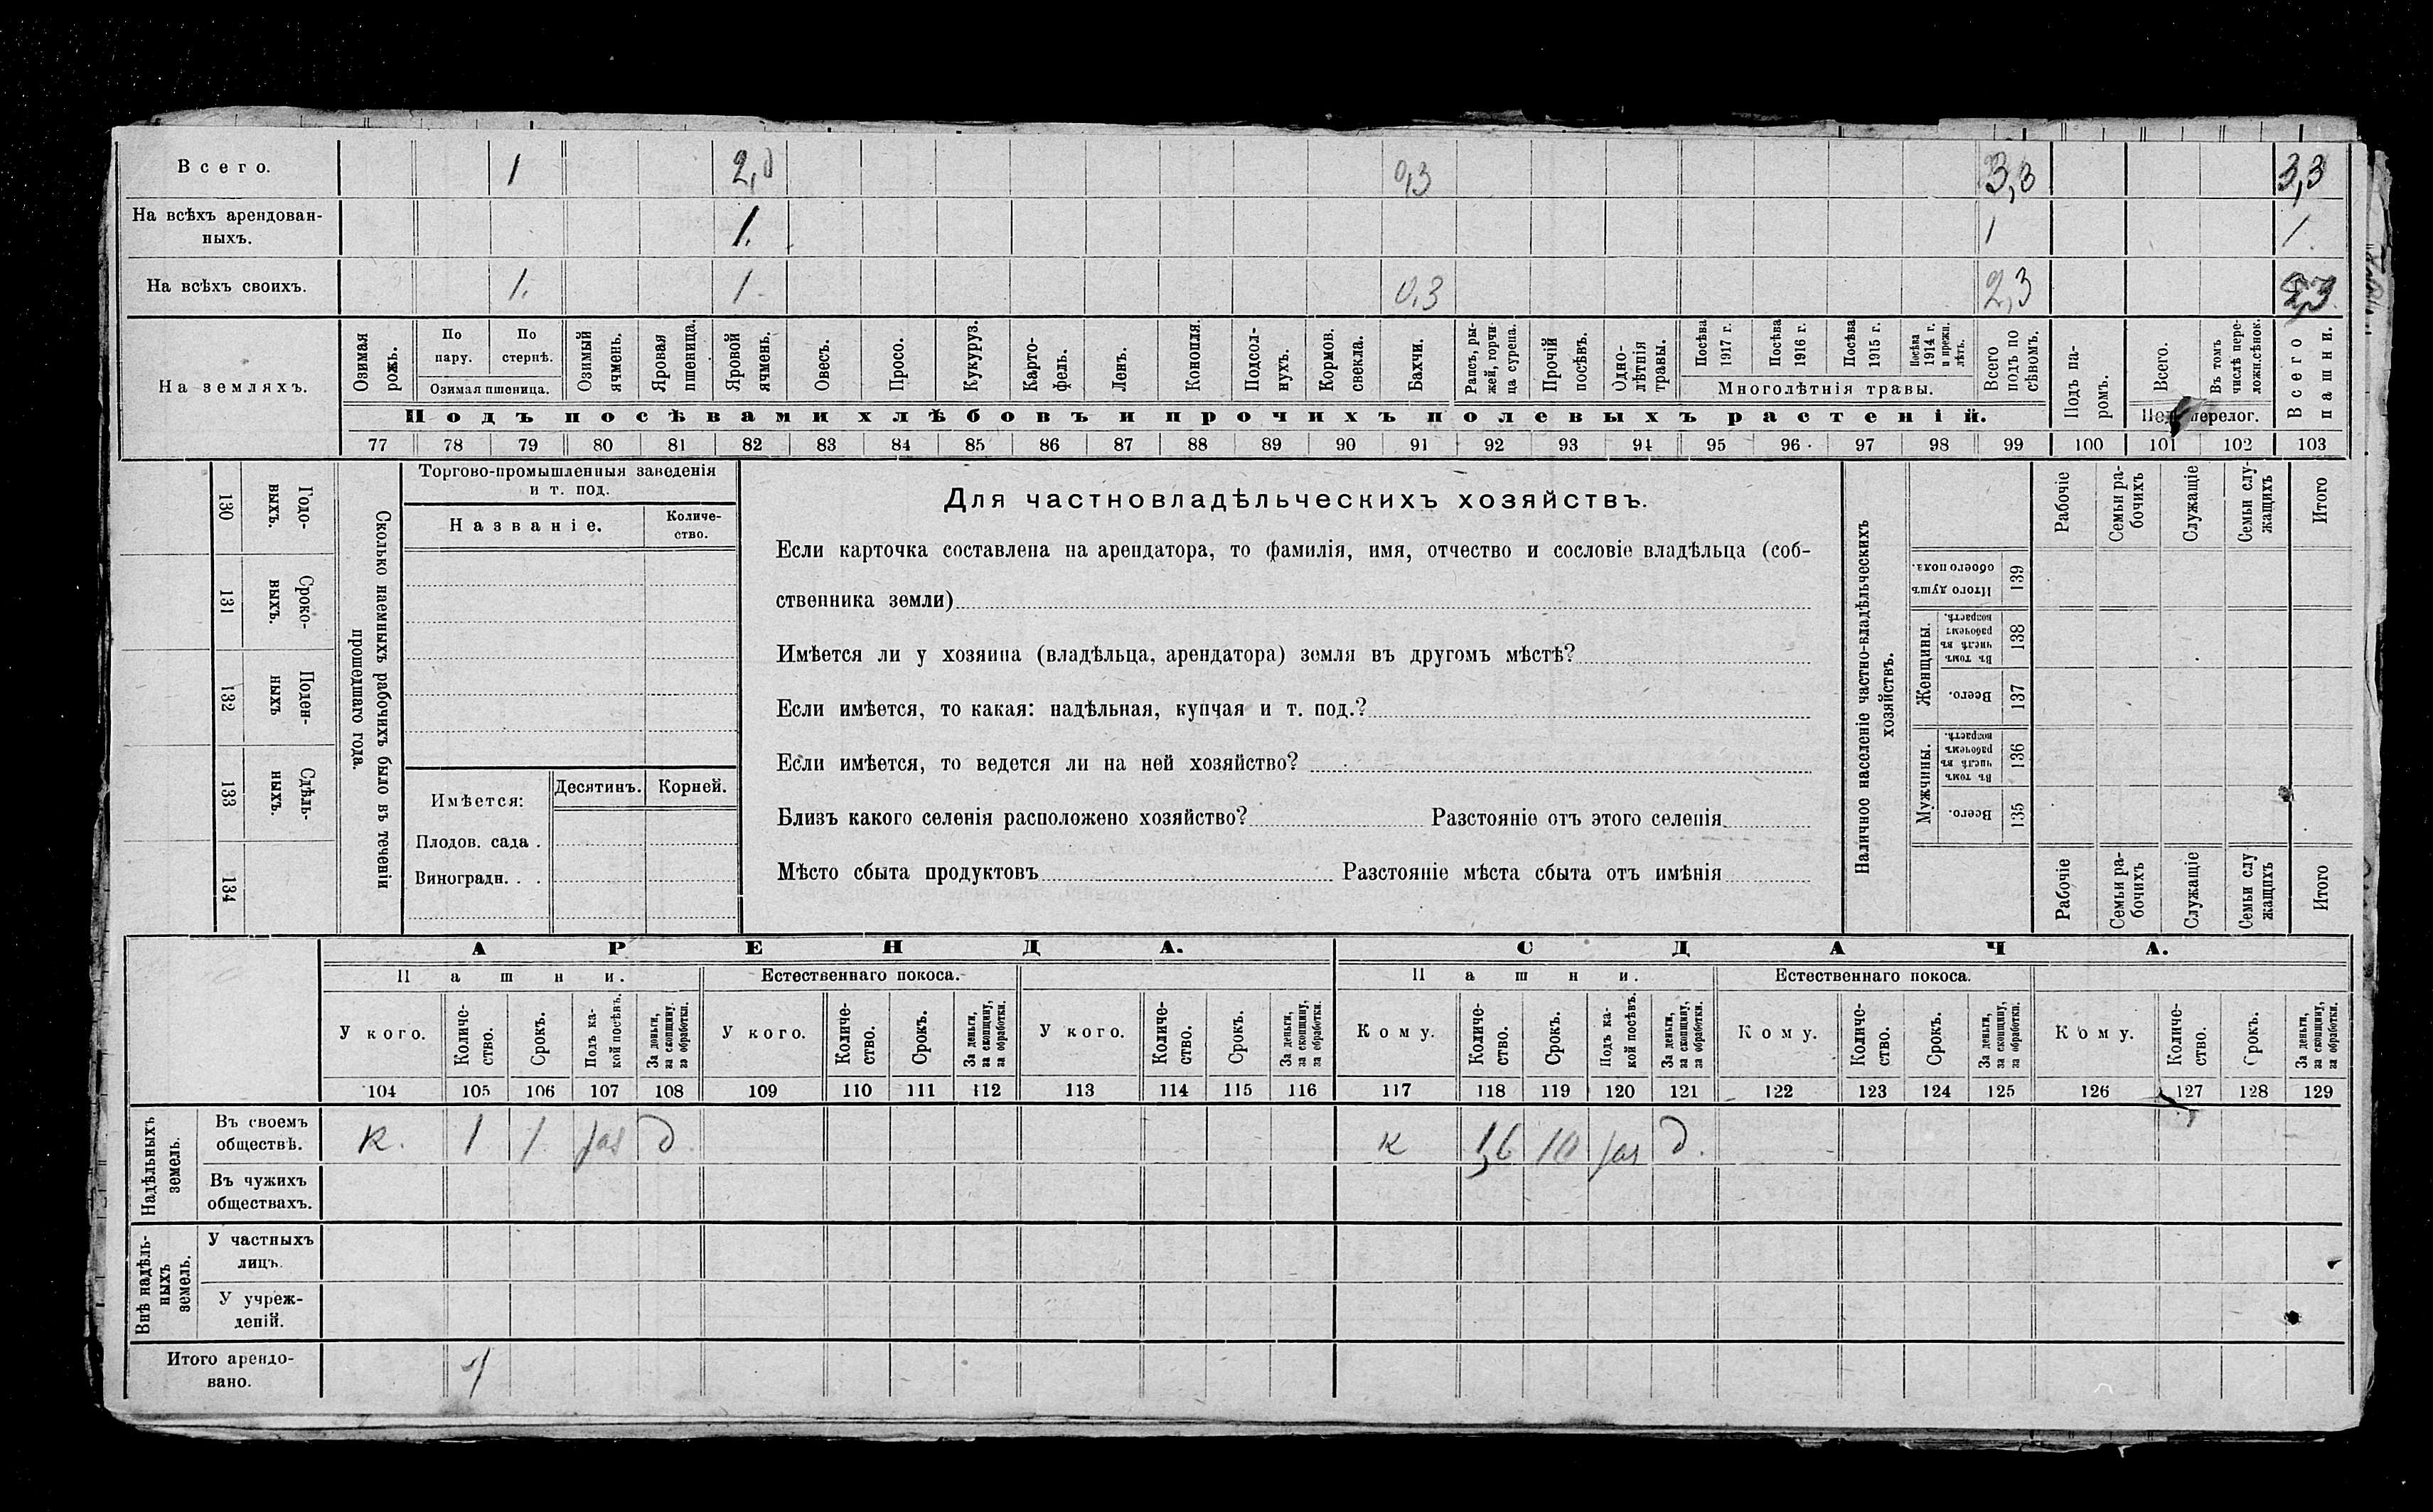 Всего. 1 2,0 0,3 3,3 3,3
На всѣхъ арендован-
ныхъ. 1. 1 1.
На всѣхъ своихъ. 1. 1. 0,3 2,3
На земляхъ.
Озимая
рожь.
По
пару.
По
стернѣ.
Озимая пшеница.
Озимый
ячмень.
Яровая
пшеница.
Яровой
ячмень.
Овесъ.
Просо.
Кукуруз.
Карто-
фель.
Ленъ.
Конопля.
Подсол-
нухъ.
Кормов.
свекла.
Бахчи.
Рапсъ, ры-
жей, горчи-
ца сурепа.
Прочій
посѣвъ.
Одно-
лѣтнія
травы.
Посѣва
1917 г.
Посѣва
1916 г.
Посѣва
1915 г.
Посѣва
1914 г.
и прежн.
лѣтъ.
Многолѣтнія травы.
Всего
подъ по
сѣвомъ.
Подъ па-
ромъ.
Всего.
Въ томъ
числѣ пере-
ложн.сѣнок.
перелог.
Всего
пашни.
Подъ посѣвами хлѣбовъ и прочихъ полевыхъ растеній.
77 78 79 80 81 82 83 84 85 86 87 88 89 90 91 92 93 94 95 96 97 98 99 100 101 102 103
130
Годо-
выхъ.
131
Сроко-
выхъ.
132
Поден-
ныхъ
133
Сдѣль-
ныхъ.
134
Сколько наемныхъ рабочихъ было въ теченіи
прошедшаго года.
Торгово-промышленныя заведенія
и т. под.
Названіе.
Количе-
ство.
Имѣется:
Десятинъ. Корней.
Плодов. сада .
Виноградн. . .
Для частновладѣльческихъ хозяйствъ.
Если карточка составлена на арендатора, то фамилія, имя, отчество и сословіе владѣльца (соб-
ственника земли)
Имѣется ли у хозяина (владѣльца, арендатора) земля въ другомъ мѣстѣ?
Если имѣется, то какая: надѣльная, купчая и т. под.?
Если имѣется, то ведется ли на ней хозяйство?
Близъ какого селенія расположено хозяйство? Разстояніе отъ этого селенія
Мѣсто сбыта продуктовъ Разстояніе мѣста сбыта отъ имѣнія
Наличное населеніе частно-владѣльческихъ
хозяйствъ.
Рабочіе
Семьи ра-
бочихъ
Служащіе
Семьи слу-
жащихъ
Итого
Итого душъ
обоего пола.
139
Женщины.
Въ томъ
числѣ въ
рабочемъ
возрастѣ.
138
Всего.
137
Мужчины.
Въ томъ
числѣ въ
рабочемъ
возрастѣ.
136
Всего.
135
Рабочіе
Семьи ра-
бочихъ
Служащіе
Семьи слу
жащихъ
Итого
АРЕНДА. СДАЧА.
Пашни. Естественнаго покоса. Пашни. Естественнаго покоса.
У кого.
Количе-
ство.
Срокъ.
Подъ ка-
кой посѣвъ.
За деньги,
за скопщину,
за обработки.
У кого.
Количе-
ство.
Срокъ.
За деньги,
за скопщину,
за обработки.
У кого.
Количе-
ство.
Срокъ.
За деньги,
за скопщину,
за обработки.
Кому.
Количе-
ство.
Срокъ.
Подъ ка-
кой посѣвъ.
За деньги,
за скопщину,
за обработки.
Кому.
Количе-
ство.
Срокъ.
За деньги,
за скопщину,
за обработки.
Кому.
Количе-
ство.
Срокъ.
За деньги,
за скопщину,
за обработки.
104 105 106 107 108 109 110 111 112 113 114 115 116 117 118 119 120 121 122 123 124 125 126 127 128 129
Надѣльныхъ
земель.
Въ своемъ
обществѣ. к. 1 1 д к 1,6 10 д.
Въ чужихъ
обществахъ.
Внѣ надѣль-
ныхъ
земель.
У частныхъ
лицъ.
У учреж-
деній.
Итого арендо-
вано. 1